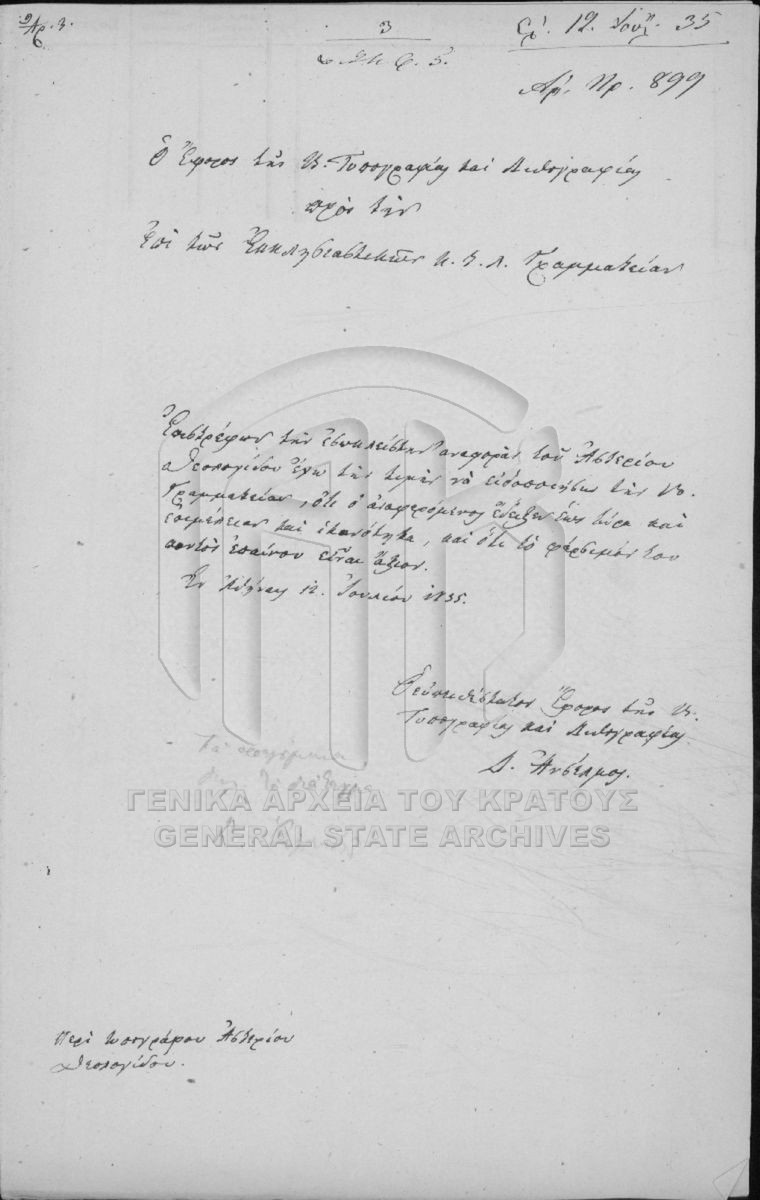 Ἀρ. 3.
3
Ἐλ. 12. Ἰουλ. 35
Ἀρ. Πρ. 899
Ὁ Ἔφορος τῆς Β. Τυπογραφίας καὶ Λιθογραφίας
πρὸς τὴν
Ἐπὶ τῶν Ἐκκλησιαστικῶν κ. τ. λ. Γραμματείαν
Ἐπιστρέφων τὴν ἐσωκλείστην ἀναφορὰν τοῦ Ἀστερίου
Θεολογίδου ἔχω τὴν τιμὴν νὰ εἰδοποιήσω τὴν Β.
Γραμματείαν, ὅτι ὁ ἀναφερόμενος ἔδειξεν ἕως τώρα καὶ
ἐπιμέλειαν καὶ ἱκανότητα, καὶ ὅτι τὸ φέρσιμόν του
παντὸς ἐπαίνου εἶναι ἄξιον.
Ἐν Ἀθήναις 12. Ἰουλίου 1835.
Ὁ εὐπειθέστατος Ἔφορος τῆς Β.
Τυπογραφίας καὶ Λιθογραφίας
Δ. Ἀνσέλμος.
ΓΕΝΙΚΑ ΑΡΧΕΙΑ ΤΟΥ ΚΡΑΤΟΥΣ
GENERAL STATE ARCHIVES
Περὶ τυπογράφου Ἀστερίου
Θεολογίδου.